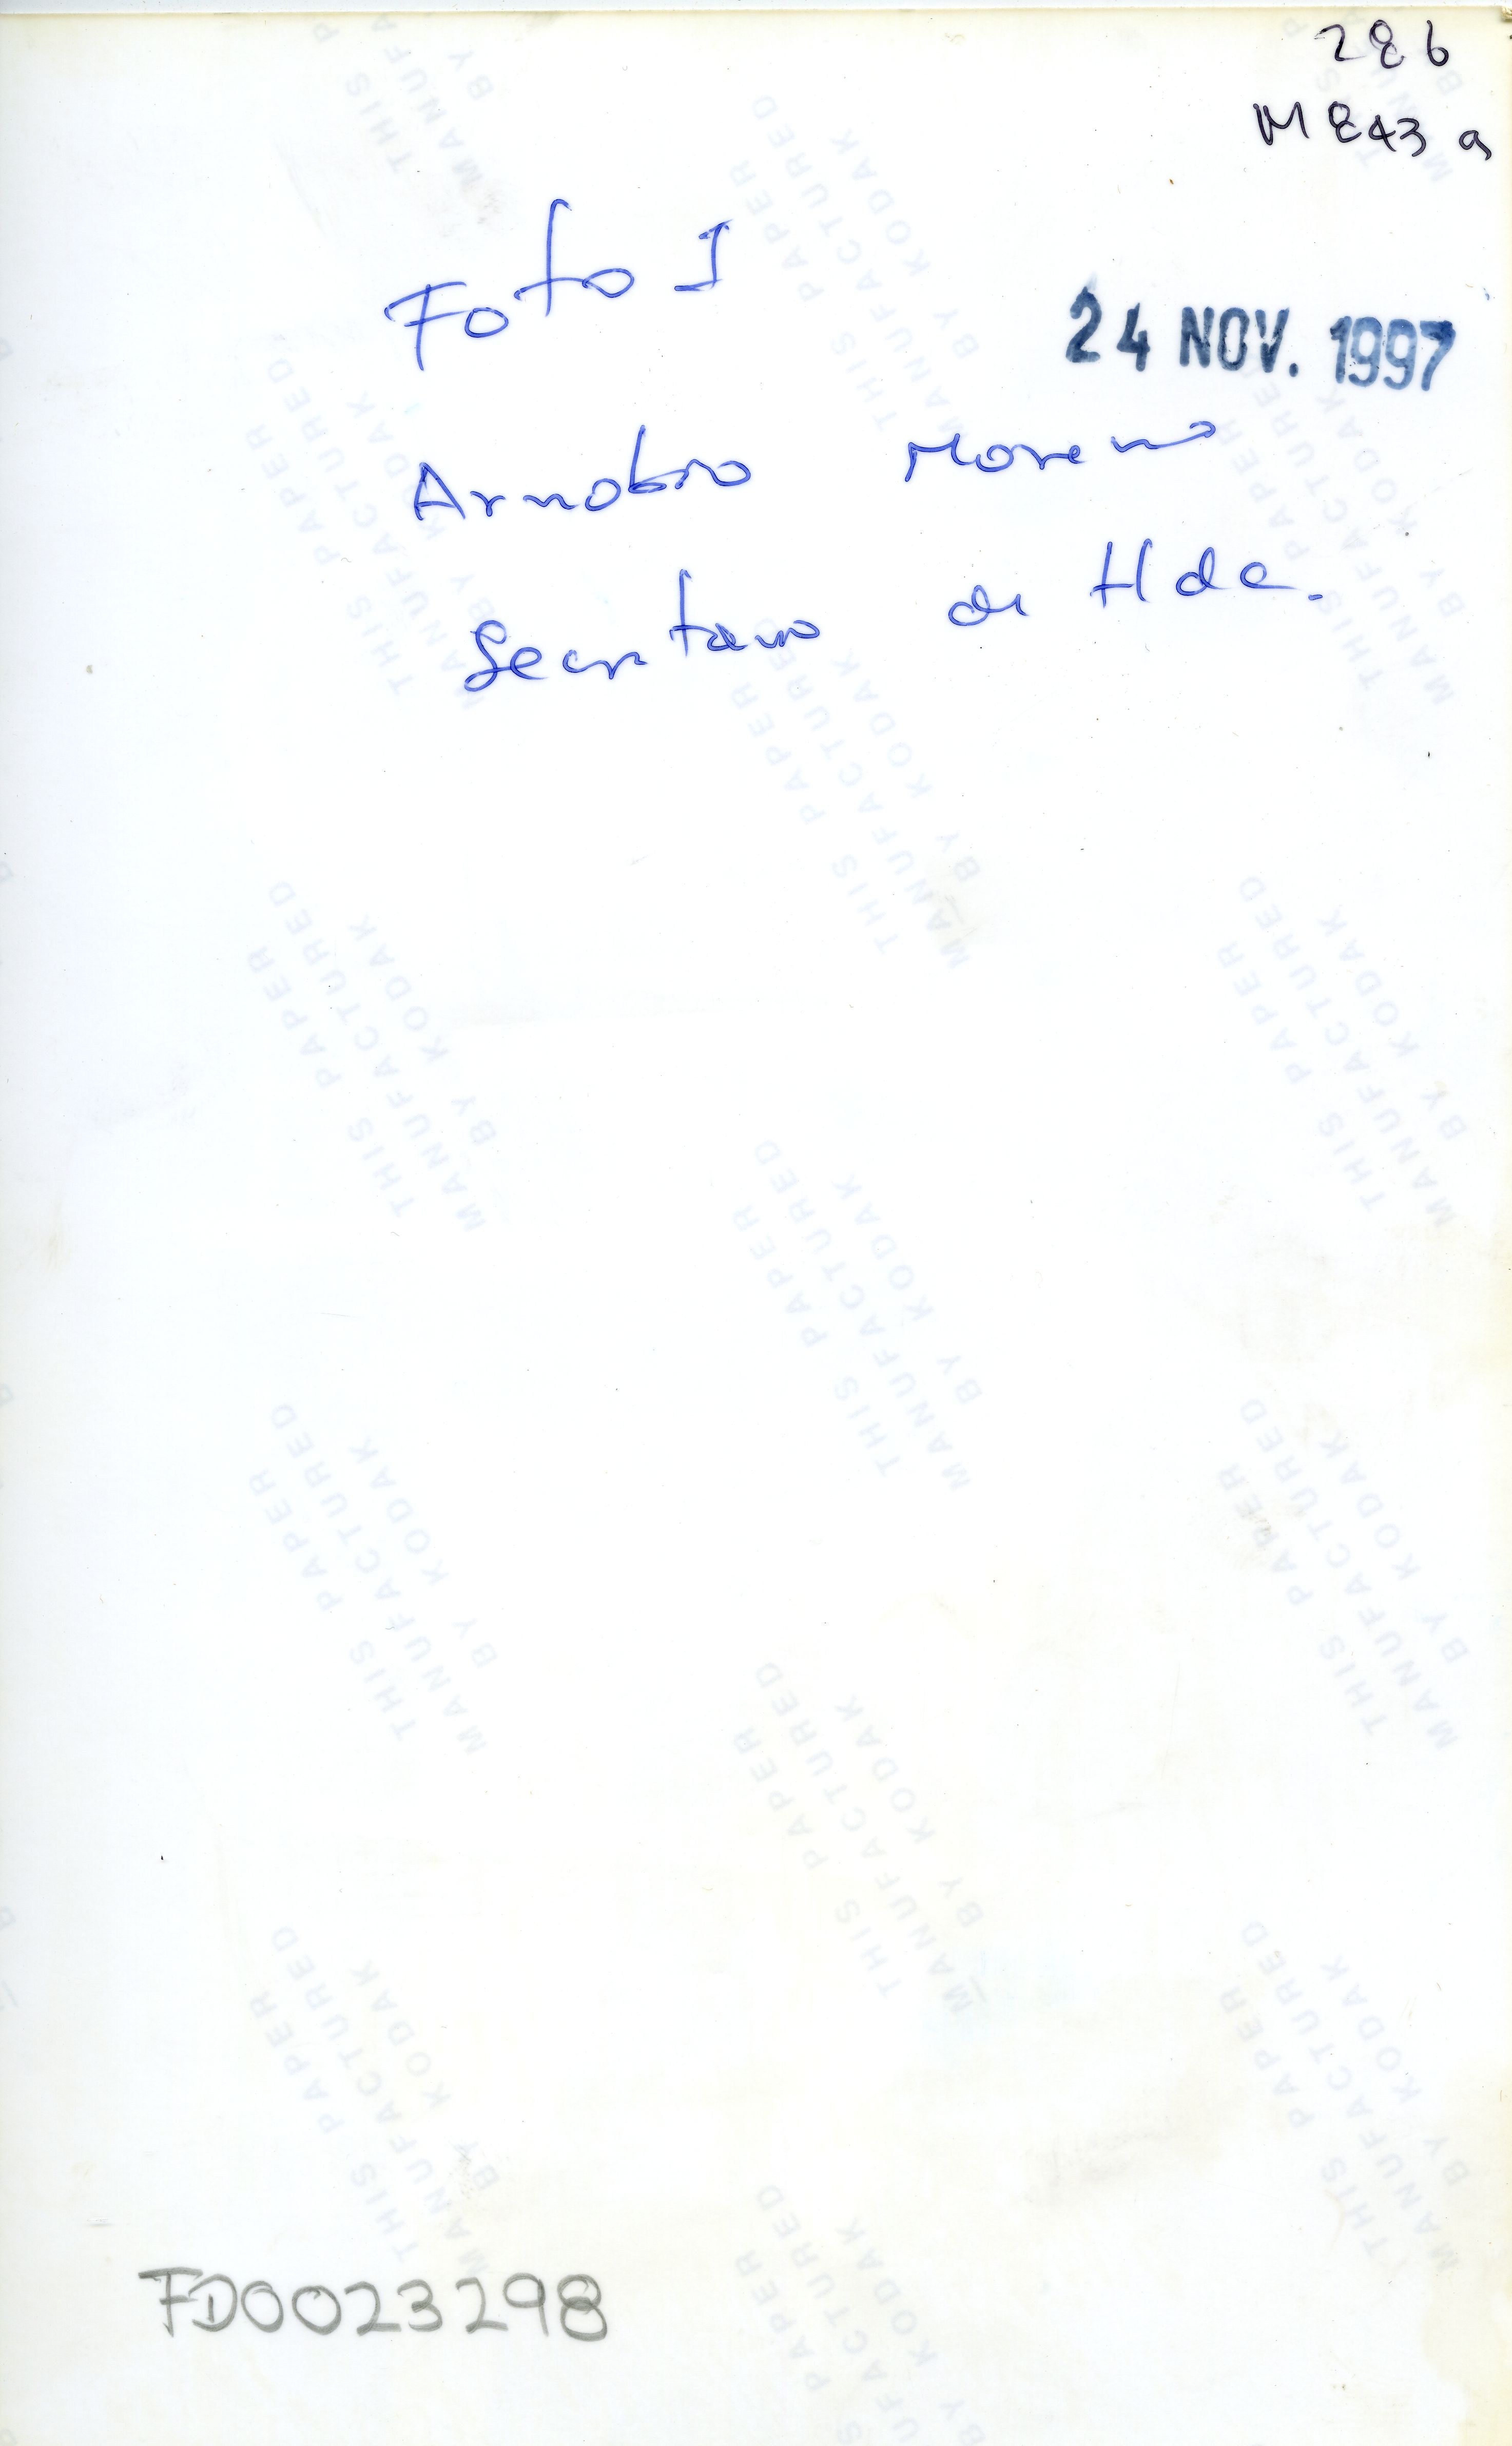 286
M843a
Foto I
24 NOV. 1997
Arnobio Moreno
Secretario de Hda.
THIS PAPER
MANUFACTURED
BY KODAK
FD0023298